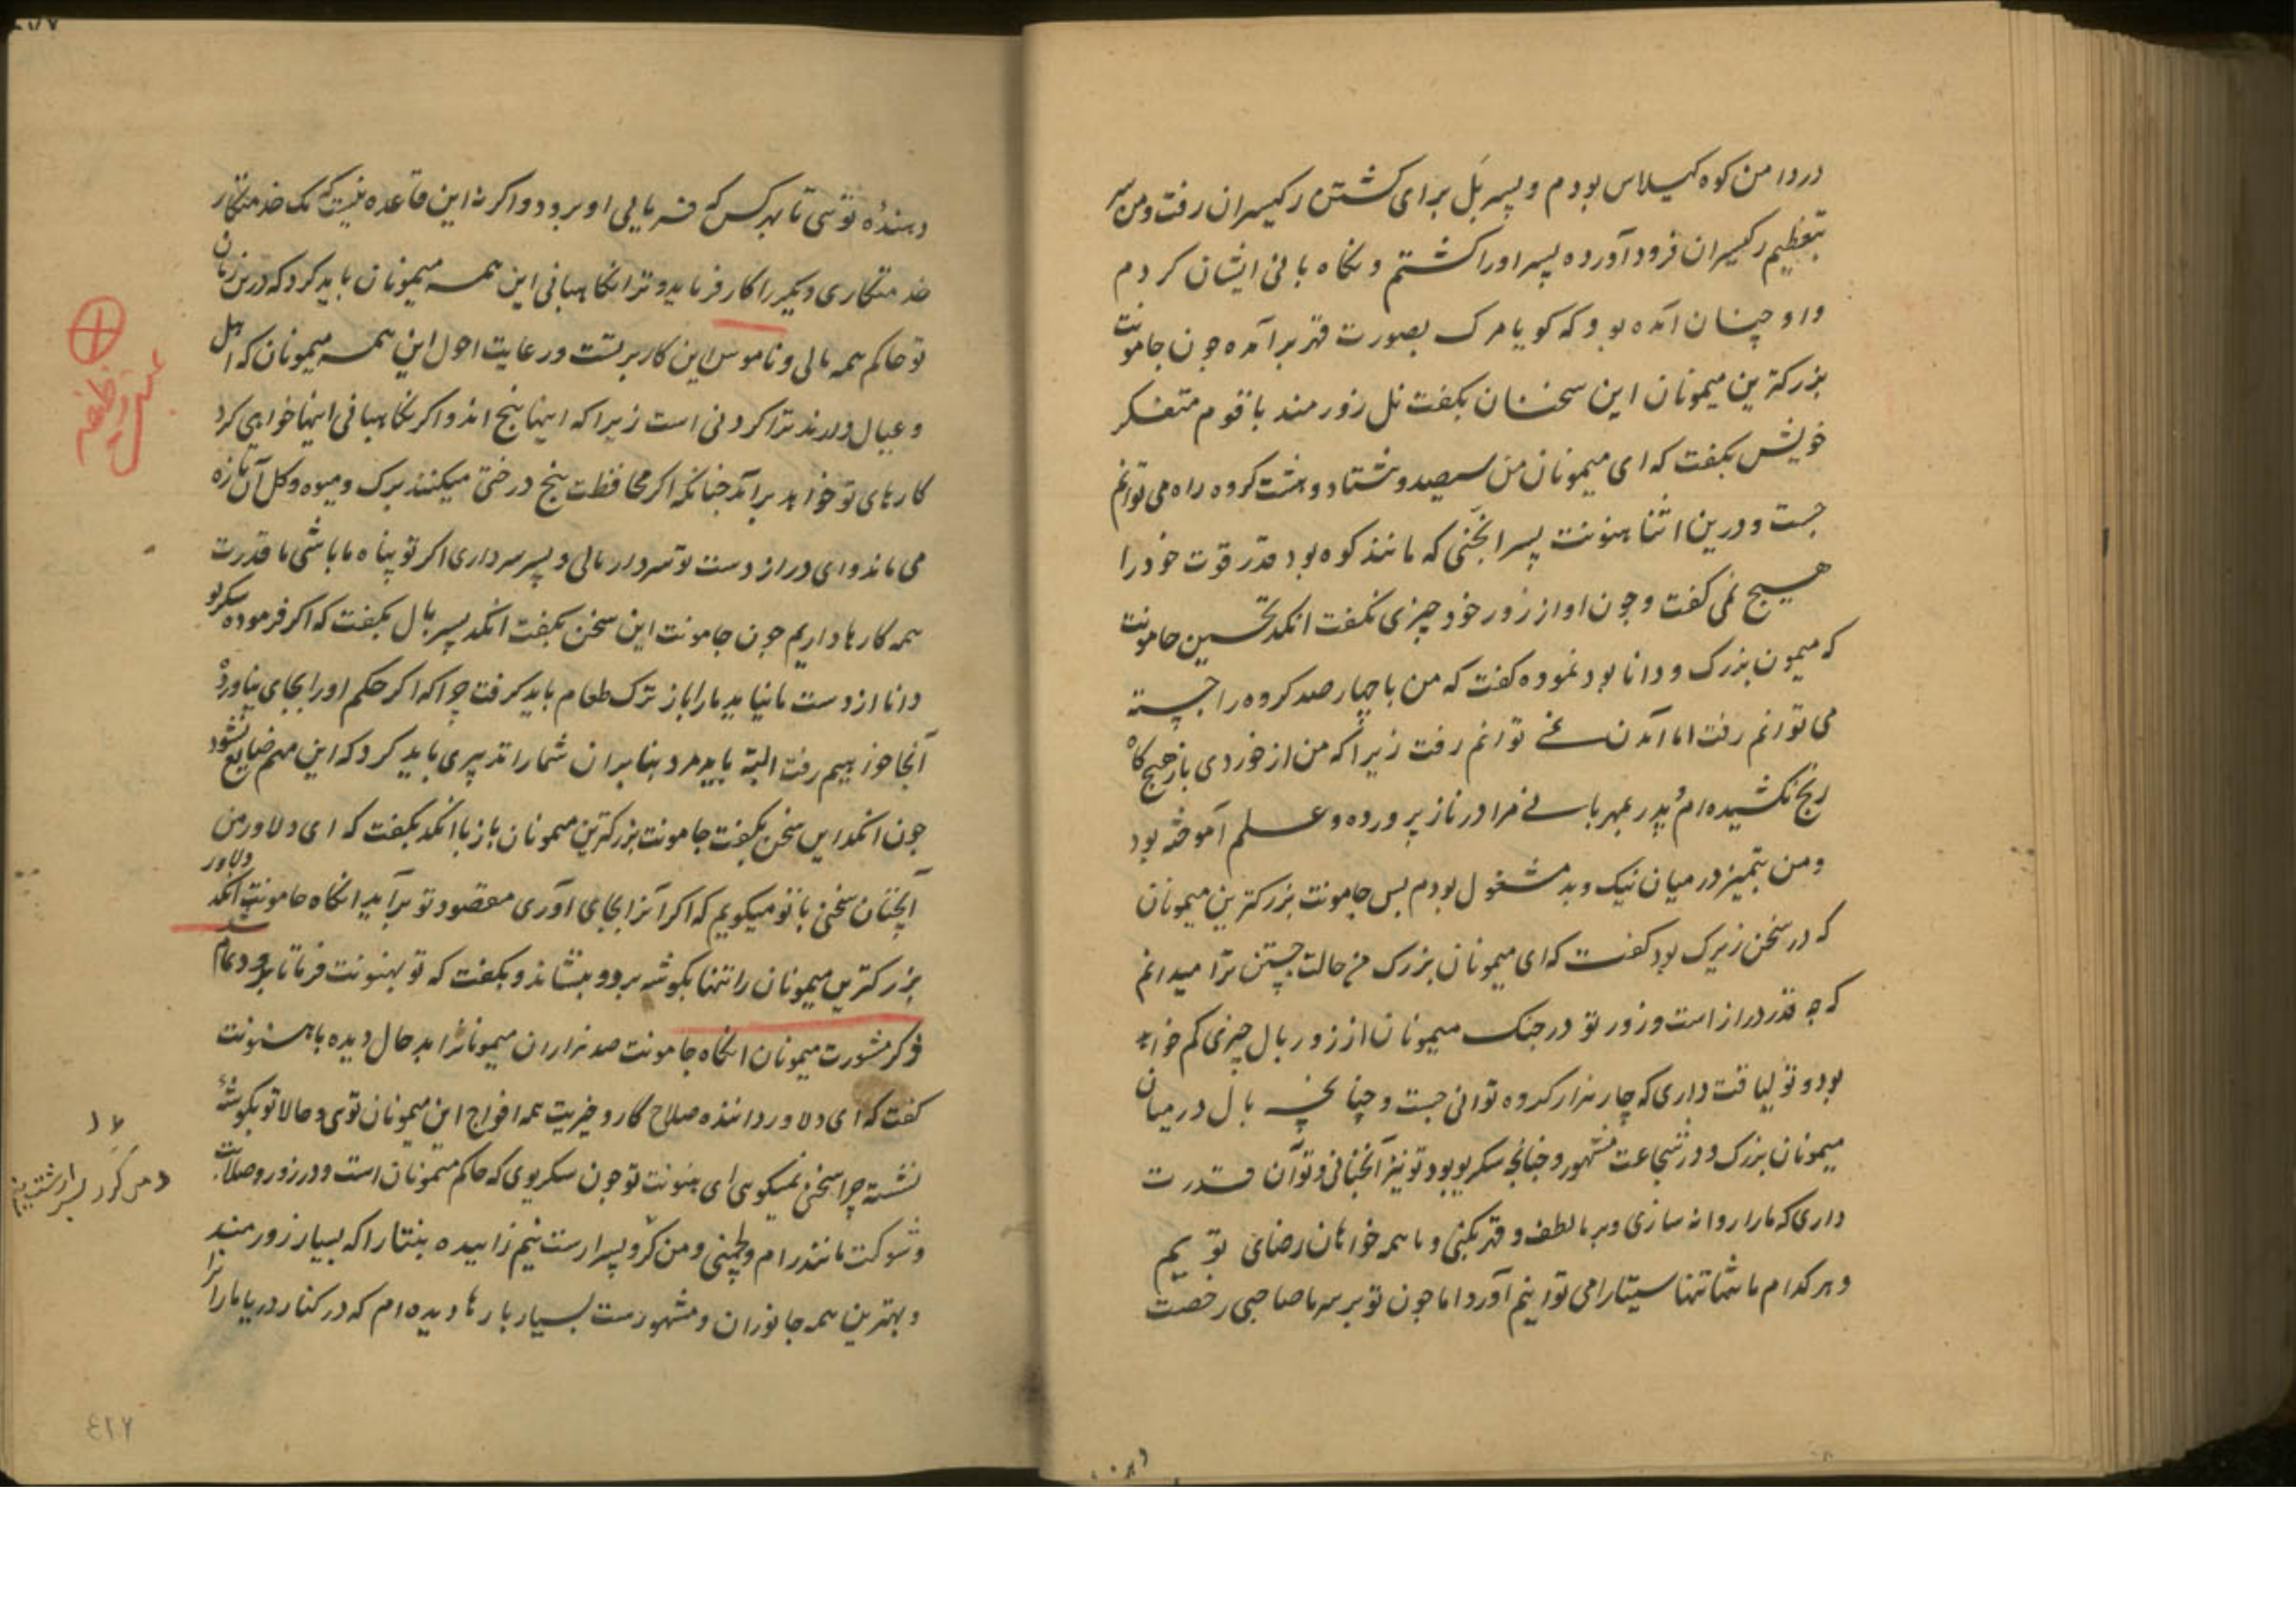 در دامن کوه کیلاس بودم و پسر بَل برای کشتن رکیسران رفت ومن بر
تعظیم رکیسران فرود آورده پسر اورا کشتم و نکاه بانی ایشان کردم
واو چنان آمده بود که کویا مرک بصورت قهر برآمده جون جامونت
بزرکترین میمونان این سخنان بکفت نل زورمند با قوم متفکر
خویش بکفت که ای میمونان من سیصد و هشتاد و هشت کروه راه می توانم
جست و درین اثنا هنونت پسر انجنی که مانند کوه بود قدر قوت خود را
هیچ نمی کفت و جون او از زور خود چیزی نکفت انکد تحسین جامونت
که میمون بزرک و دانا بود نموده کفت که من باچهار صد کروه را جسته
می توانم رفت اما آمدن نمی توانم رفت زیراکه من از خوردی باز هیچ کاه
رنج نکشیده ام و پدر بمهربانی مرا در ناز پرورده و علم آموخته بود
ومن بتمیز در میان نیک و بد مشغول بودم پس جامونت بزرکترین میمونان
که در سخن زیرک بود کفت که ای میمونان بزرک من حالت جستن ترا میدانم
که چه قدر دراز است و زور تو در جنک میمونان از زور بال چیزی کم خواهد
بود و تو لیاقت داری که چار هزار کروه توانی جست و چنانچه بال در میان
میمونان بزرک و در شجاعت مشهور و جنانجه سکریو بود تو نیز آنچنانی و تو آن قدرت
داری که مارا روانه سازی و بر ما لطف و قهر بکنی و ما همه خواهان رضای تو ییم
و هر کدام ما تنها تنها سیتا را می توانیم آورد اما جون تو بر سر ما صاحبی رخصت
دهنده توئی تا بهر کس که فرمایی او برود واکر نه این قاعده نیست که یک خدمتکار
خدمتکاری دیکر را کار فرماید و ترا نکاهبانی این همه میمونان باید کرد که درین زمان
تو حاکم همه مالی و ناموس این کار بر تست و رعایت احوال این همه میمونان که اهل
و عیال دارند ترا کردنی است زیراکه اینها بیخ اند و اکر نکاهبانی اینها خواهی کرد
کارهای تو خواهد برآمد جنانکه اکر محافظت بیخ درختی میکنند برک و میوه و کل آن تازه
می ماند و ای دراز دست تو سردار مالی و پسر سرداری اکر تو پناه ما باشی ما قدرت
همه کارها داریم جون جامونت این سخن بکفت انکد پسر بال بکفت که اکر فرموده سکریو
دانا از دست ما نیاید مارا باز ترک طعام باید کرفت چراکه اکر حکم اورا بجای نیاورده
آنجا خواهیم رفت البته باید مرد بنابران شمارا تدبیری باید کرد که این مهم ضایع نشود
جون انکد این سخن بکفت جامونت بزرکترین میمونان باز با انکد بکفت که ای دلاور من
آنچنان سخن با تو میکویم که اکر آنرا بجای آوری مقصود تو برآید انکاه جامونت انکد دلاور
بزرکترین میمونان را تنها بکوشه برد و بنشاند و بکفت که تو بهنونت فرما تا برود تمام شد
ذکر مشورت میمونان انکاه جامونت صد هزاران میمونانرا بد حال دیده با هنونت
کفت که ای دلاور داننده صلاح کار و خیریت همه افواج این میمونان توی و حالا تو بکوشهٔ
نشسته چرا سخن نمیکوی ای هنونت تو جون سکریوی که حاکم میمونان است و در زور و صلابت
و شوکت مانند رام و لچمنی و من کرو پسر ارست نیم زاییده بنتا را که بسیار زورمند
و بهترین همه جانوران و مشهورست بسیار بارها دیده ام که در کنار دریا مارانرا
٤٢٧